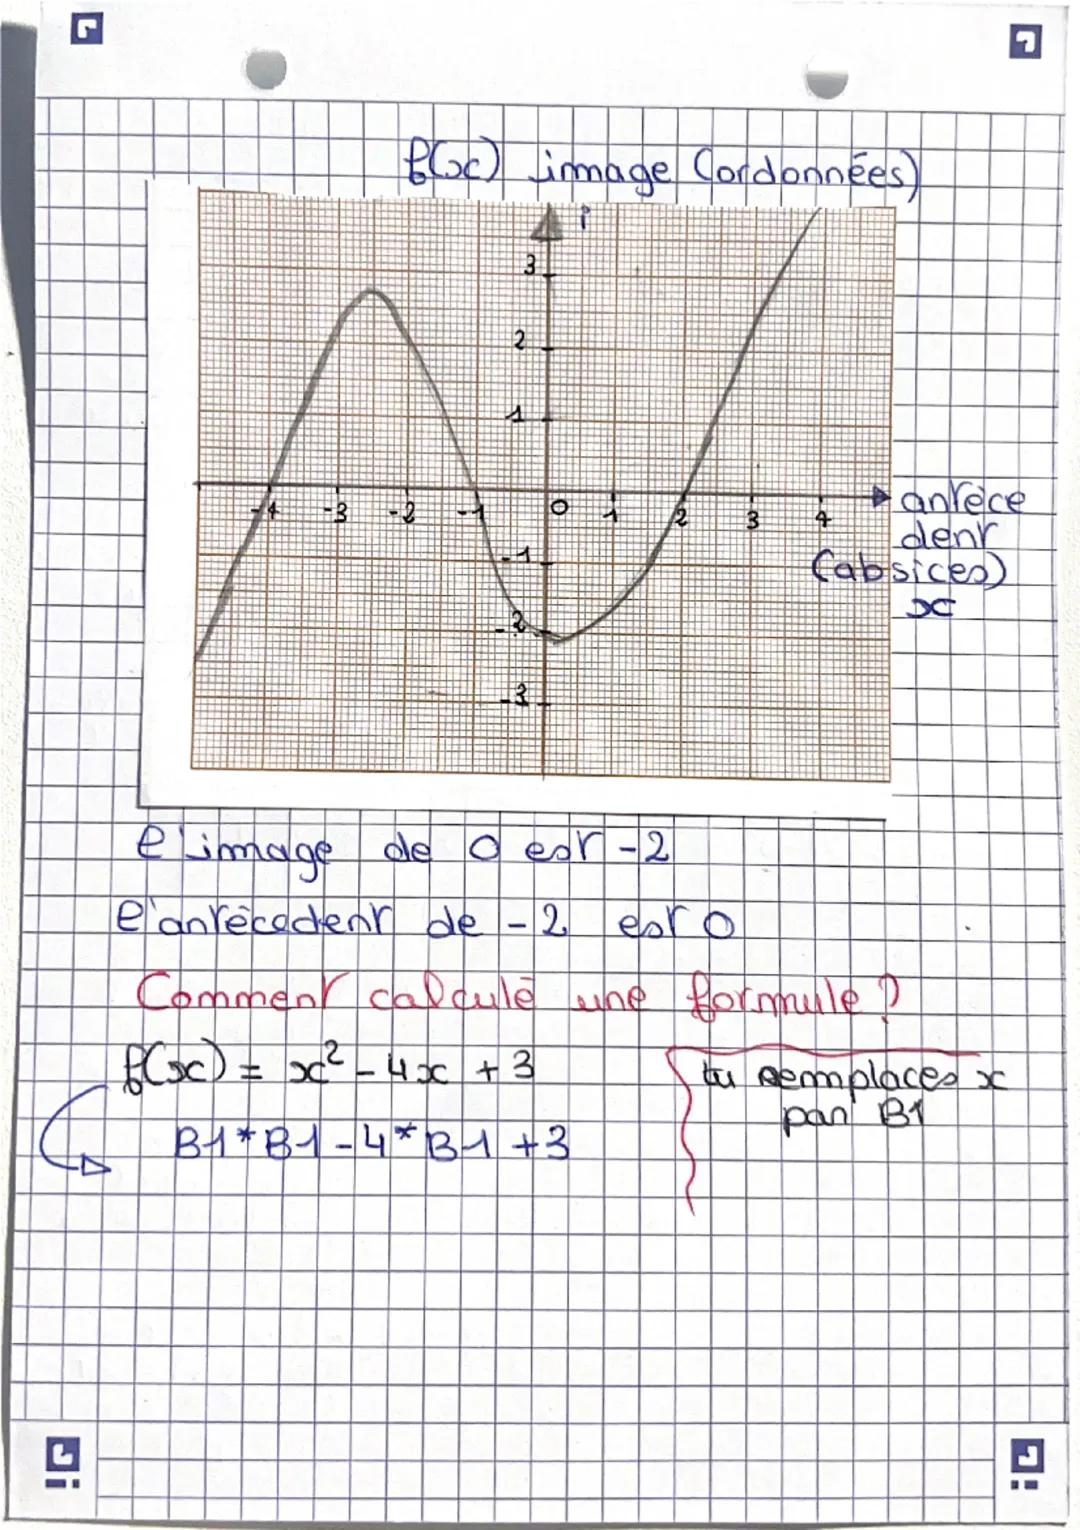 f(x) image (ordonnées)
3
2
1
-4 -3 -2 -1 0 1 2 3 4
-1
-2
-3
antécé
dent
(absices)
x
l'image de 0 est -2
l'antécédent de -2 est 0
Comment calculé une formule ?
f(x) = x² - 4x + 3
tu remplaces x
par B1
B1*B1-4*B1+3